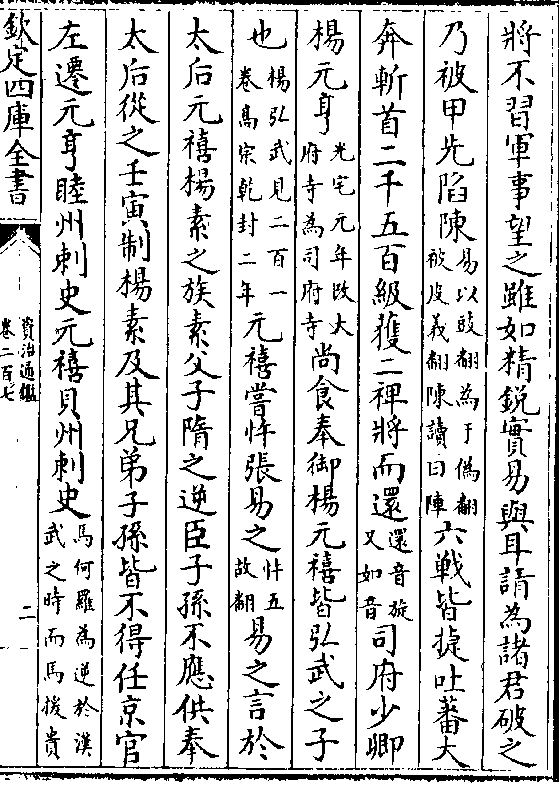 將不習軍事望之雖如精鋭實易與耳請為諸君破之
乃被甲先陷陳易以豉翻為于偽翻
被皮義翻陳讀曰陣六戰皆捷吐蕃大
奔斬首二千五百級獲二禆將而還還音旋
又如音司府少卿
楊元亨光宅元年改太
府寺為司府寺尚食奉御楊元禧皆弘武之子
也楊弘武見二百一
卷高宗乾封二年元禧嘗忤張易之忤五
故翻易之言於
太后元禧楊素之族素父子隋之逆臣子孫不應供奉
太后從之壬寅制楊素及其兄弟子孫皆不得任京官
左遷元亨睦州刺史元禧貝州刺史馬何羅為逆於漢
武之時而馬援貴
欽定四庫全書
資治通鑑
卷二百七
二